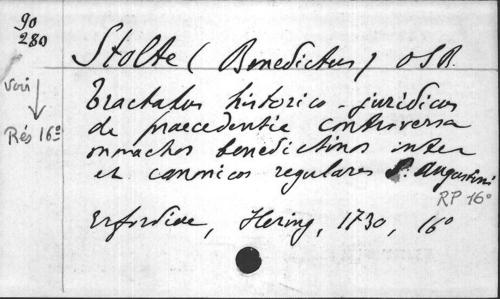 90
280
Stolte (Benedictus) OSB.
voir
Tractatus historico-juridicus
Rés 16°
de praecedentie controversa
monachos benedictinos inter
et canonicos regulares S. Augustini
RP 16°
Erfordiae, Hering, 1730, 16°